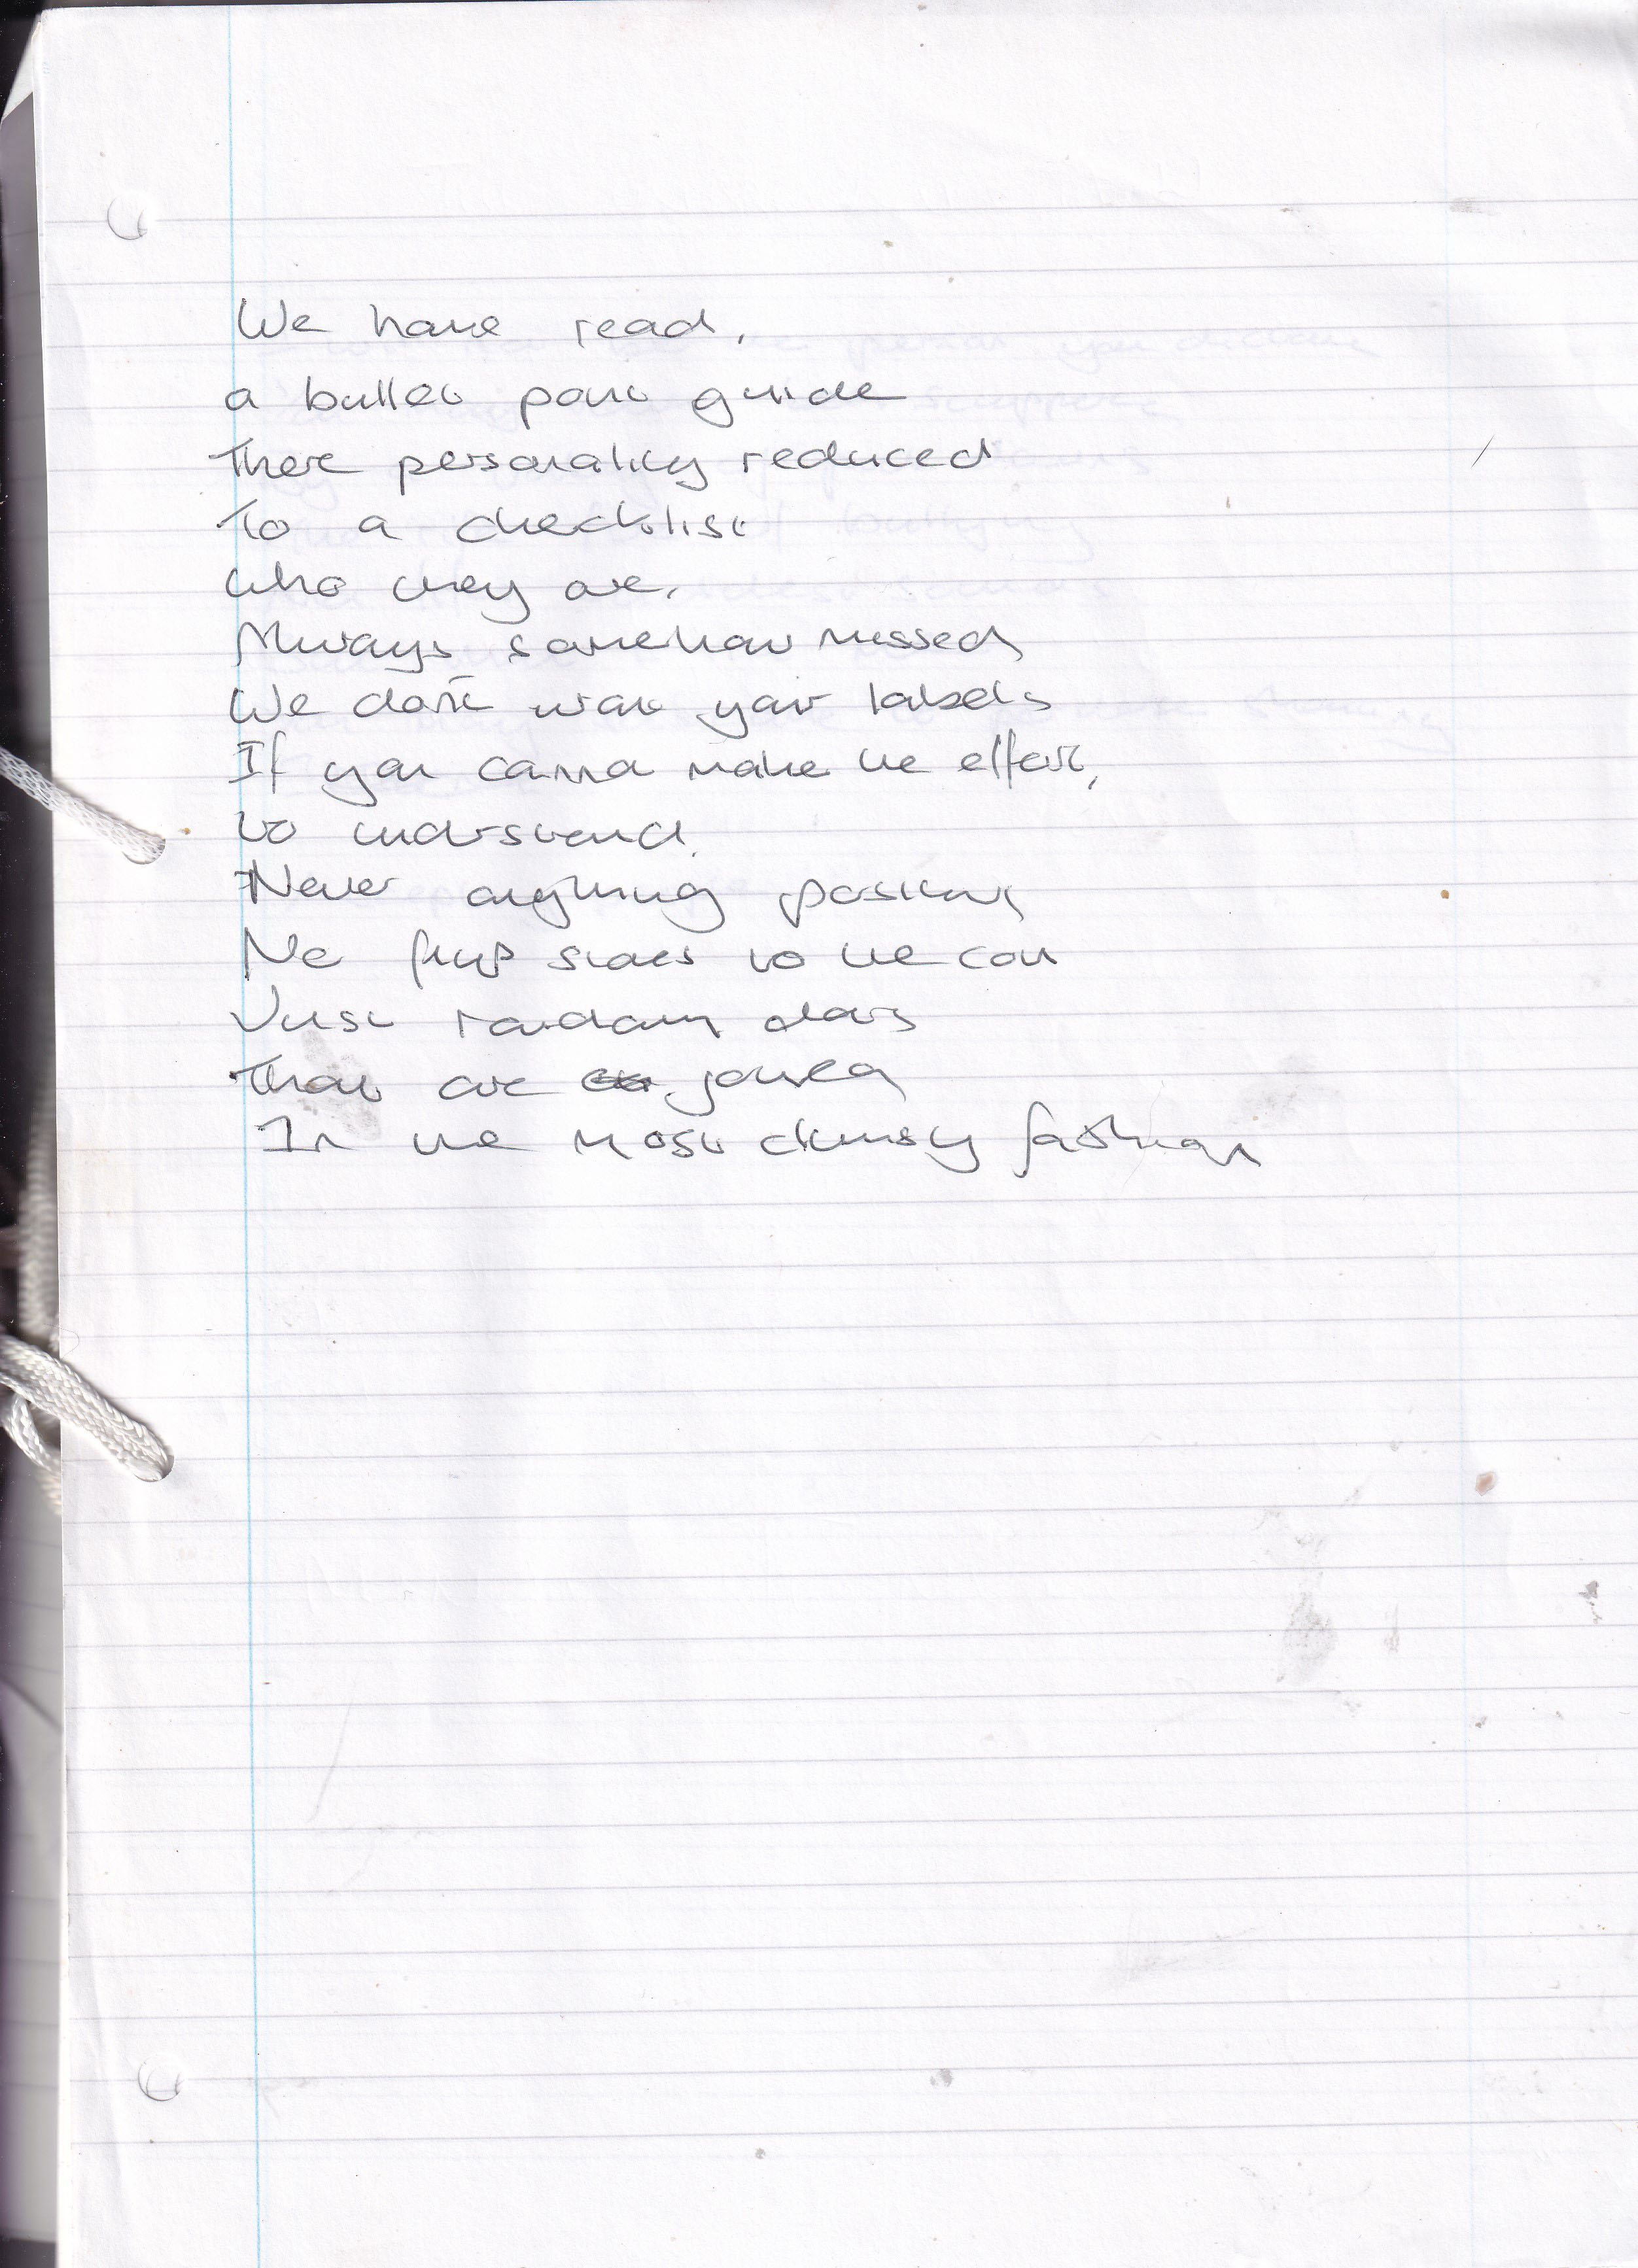 We have read,
a bullet point guide
There personality reduced
To a checklist
who they are,
Always somehow missed
We don't want your labels
If you cannot make the effort,
to understand.
Never anything positive
No flip sides to the coin
Just random dots
That are joined
In the most clumsy fashion